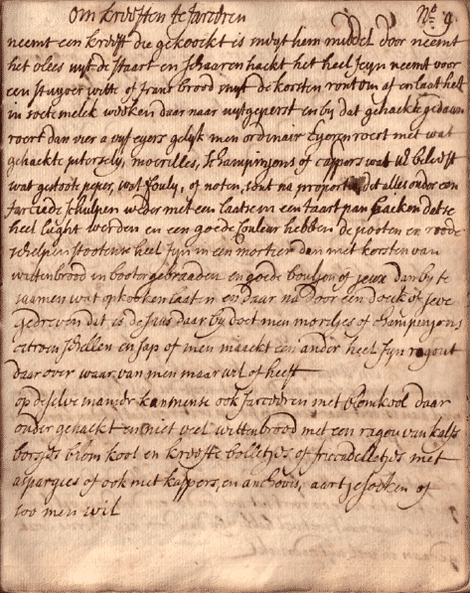 om krooften te farceren No 9.
neemt een krooft die gekoockt is snijt hem middel door neemt
het vlees uyt de staart en schaaren hackt het heel fijn neemt voor
een stuyver witte of frans brood snijt de korsten rontom af en laat het
in soete melck weeken daar naar uytgeperst en by dat gehackte gedaen
roert dan vier a vyf eyers gelyk men ordinair Eyeren roert met wat
gehackte pitersely, moerilles, Schampinjons of cappers wat UE belieft
wat gestoote peper, wat fouly, of noten, sout na proportie, dit alles onder een
farcieert schulpen weder met een laatse in een taart pan backen datse
heel light werden en een goede Couleur hebben de pooten en roode
schelpen stootense heel fijn in een mortier dan met korsten van
wittenbrood in booter gebraaden en goede bouljon of jeux dan by te
saamen wat opkooken laaten en daar na door een doeck of seve
gedreven dat is de saus daar by doet men moreljes of champinjons
citroen schellen en sap of men maackt een ander heel fijn ragout
daar over waar van men maar wil of heeft
op deselve manier kanmense ook farceeren met blomkool daar
onder gehackt en niet veel wittenbrood met een ragou van kalfs
borsjes blom kool en kroofte bolletjes of friccadelletjes met
aspargies of ook met kappers, en anchovis, aartjesocken of
soo men wil